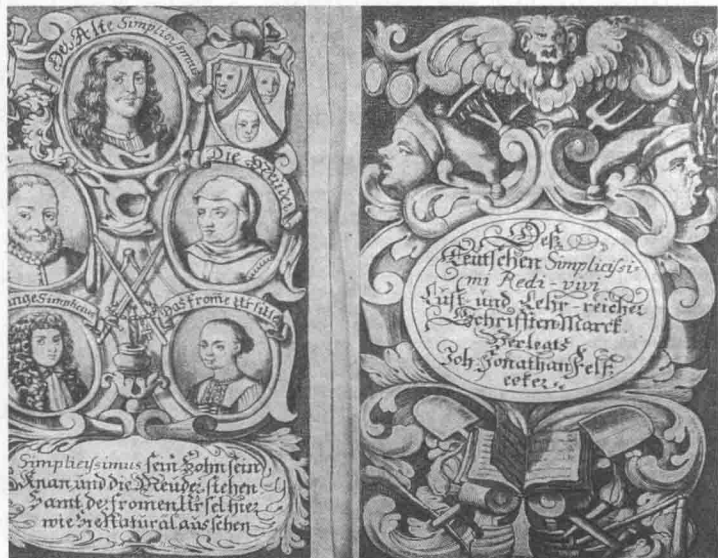 Der Alte Simplicissimus
Die Meuder
unge Simplicius
Das frome Ursele
Simplicissimus sein Sohn sein
Knan und die Meuder stehen
Samt der fromen Ursel hier
wie sie Natural aussehen
Deß
Teutschen Simplicissi-
mi Redi-vivi
Lust- und Lehr-reicher
Schrifften Marck.
Verlegts
Joh. Jonathan Felß
ecker